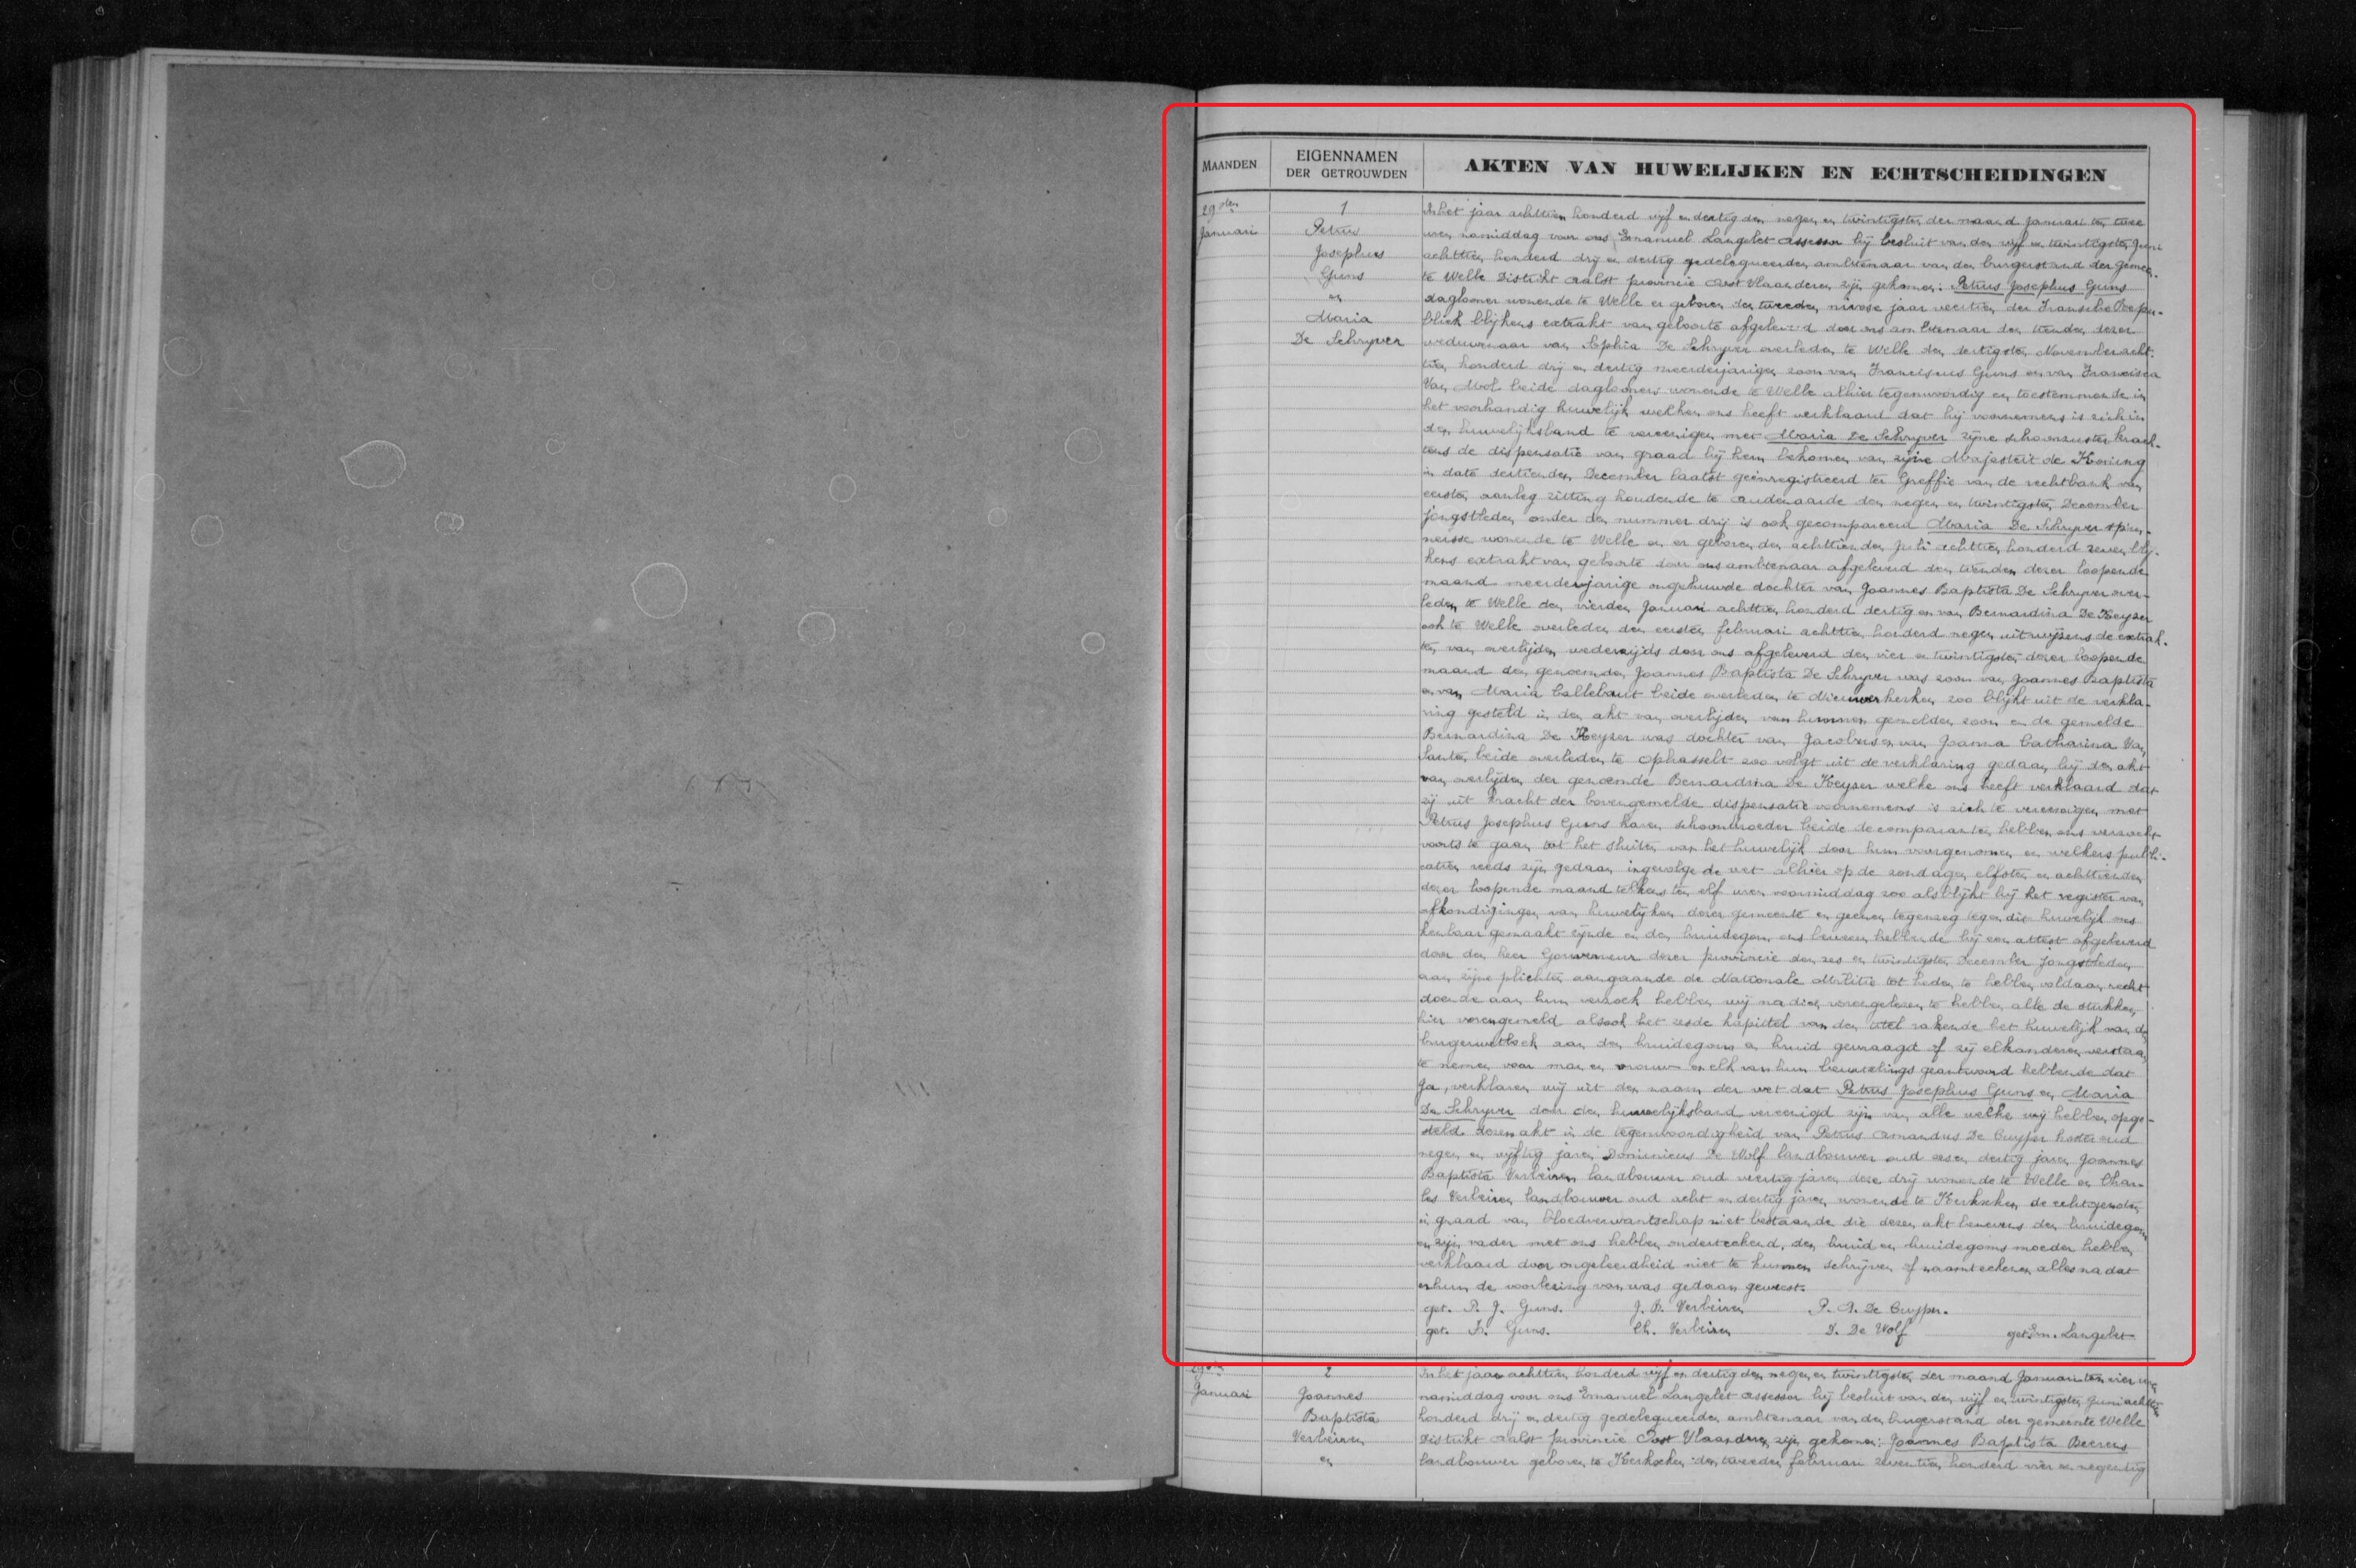 MAANDEN
EIGENNAMEN
DER GETROUWDEN
AKTEN VAN HUWELIJKEN EN ECHTSCHEIDINGEN
29sten
Januari
1
Petrus
Josephus
Guns
en
Maria
De Schryver
In het jaar achttien honderd vijf en dertig den negen en twintigsten der maand Januari ten twee
uren namiddag voor ons Emanuel Langelet assessor bij besluit van den vijf en twintigsten Juni
achttien honderd drij en dertig gedelegueerden ambtenaar van den burgerstand der gemeen-
te Welle District Aalst provincie Oost Vlaanderen zijn gekomen: Petrus Josephus Guns
daglooner wonende te Welle er geboren den tweeden nivose jaar veertien der Fransche Repu-
bliek blijkens extrakt van geboorte afgeleverd door ons ambtenaar den tienden dezer
weduwenaar van Sophia De Schryver overleden te Welle den dertigsten November acht-
tien honderd drij en dertig meerderjarigen zoon van Franciscus Guns en van Francisca
Van Mol beide daglooners wonende te Welle alhier tegenwoordig en toestemmende in
het voorhandig huwelijk welken ons heeft verklaard dat hij voornemens is zich in
den huwelijksband te vereenigen met Maria De Schryver zijne schoonzuster krach-
tens de dispensatie van graad bij hem bekomen van zijne Majesteit de Koning
in date dertienden December laatst geënregistreerd ter Greffie van de rechtbank van
eersten aanleg zitting houdende te Audenaarde den negen en twintigsten December
jongstleden onder den nummer drij is ook gecompareerd Maria De Schryver spin-
nersse wonende te Welle en er geboren den achttienden Juli achttien honderd zeven blij-
kens extrakt van geboorte door ons ambtenaar afgeleverd den tienden dezer loopende
maand meerderjarige ongehuwde dochter van Joannes Baptista De Schryver over-
leden te Welle den vierden Januari achttien honderd dertig en van Bernardina De Keyzer
ook te Welle overleden den eersten februari achttien honderd negen uitwijzens de extrak-
ten van overlijden wederzijds door ons afgeleverd den vier en twintigsten dezer loopende
maand den genoemden Joannes Baptista De Schryver was zoon van Joannes Baptista
en van Maria Callebaut beide overleden te Nieuwerkerken zoo blijkt uit de verkla-
ring gesteld in den akt van overlijden van hunnen gemelden zoon en de gemelde
Bernardina De Keyzer was dochter van Jacobus en van Joanna Catharina Van
Santen beide overleden te Ophasselt zoo volgt uit de verklaring gedaan bij den akt
van overlijden der genoemde Bernardina De Keyzer welke ons heeft verklaard dat
zij uit kracht der bovengemelde dispensatie voornemens is zich te vereenigen met
Petrus Josephus Guns haren schoonbroeder beide de comparanten hebben ons verzocht
voorts te gaan tot het sluiten van het huwelijk door hun voorgenomen en welkers publi-
catien reeds zijn gedaan ingevolge de wet alhier op de zondagen elfsten en achttienden
dezer loopende maand telkens ten elf uren voormiddag zoo als blijkt bij het register van
afkondigingen van huwelijken dezer gemeente en geenen tegenzeg tegen dit huwelijk ons
kenbaar gemaakt zijnde en den bruidegom ons bewezen hebbende bij een attest afgeleverd
door den heer Gouverneur dezer provincie den zes en twintigsten December jongstleden
aan zijne plichten aangaande de Nationale Militie tot heden te hebben voldaan recht
doende aan hun verzoek hebben wij na dien voorengelezen te hebben alle de stukken
hier vorengemeld alsook het zesde kapittel van den titel rakende het huwelijk van de
burgerwetboek aan den bruidegom en bruid gevraagd of zij elkanderen verstaan
te nemen voor man en vrouw en elk van hun beurtelings geantwoord hebbende dat
Ja, verklaren wij uit den naam der wet dat Petrus Josephus Guns en Maria
De Schryver door den huwelijksband vereenigd zijn van alle welke wij hebben opge-
steld dezen akt in de tegenwoordigheid van Petrus Amandus De Cuyper koster oud
negen en vijftig jaren Dominicus De Wolf landbouwer oud zes en dertig jaren Joannes
Baptista Verbeiren landbouwer oud veertig jaren deze drij wonende te Welle en Char-
les Verbeiren landbouwer oud acht en dertig jaren wonende te Kerksken de echtgenoten
in graad van bloedverwantschap niet bestaande die dezen akt benevens den bruidegom
en zijn vader met ons hebben onderteekend, den bruid en bruidegoms moeder hebben
verklaard door ongeleerdheid niet te kunnen schrijven of naamteekenen alles na dat
er hun de voorlezing van was gedaan geweest.
get. P. J. Guns. J. B. Verbeiren P. A. De Cuyper.
get. F. Guns. Ch. Verbeiren D. De Wolf get Em. Langelet
29sten
Januari
2
Joannes
Baptista
Verbeiren
en
In het jaar achttien honderd vijf en dertig den negen en twintigsten der maand Januari ten vier uren
namiddag voor ons Emanuel Langelet assessor bij besluit van den vijf en twintigsten Juni achttien
honderd drij en dertig gedelegueerden ambtenaar van den burgerstand der gemeente Welle
District Aalst provincie Oost Vlaanderen zijn gekomen: Joannes Baptista Beerens
landbouwer geboren te Kerksken den tweeden februari zeventien honderd vier en negentig